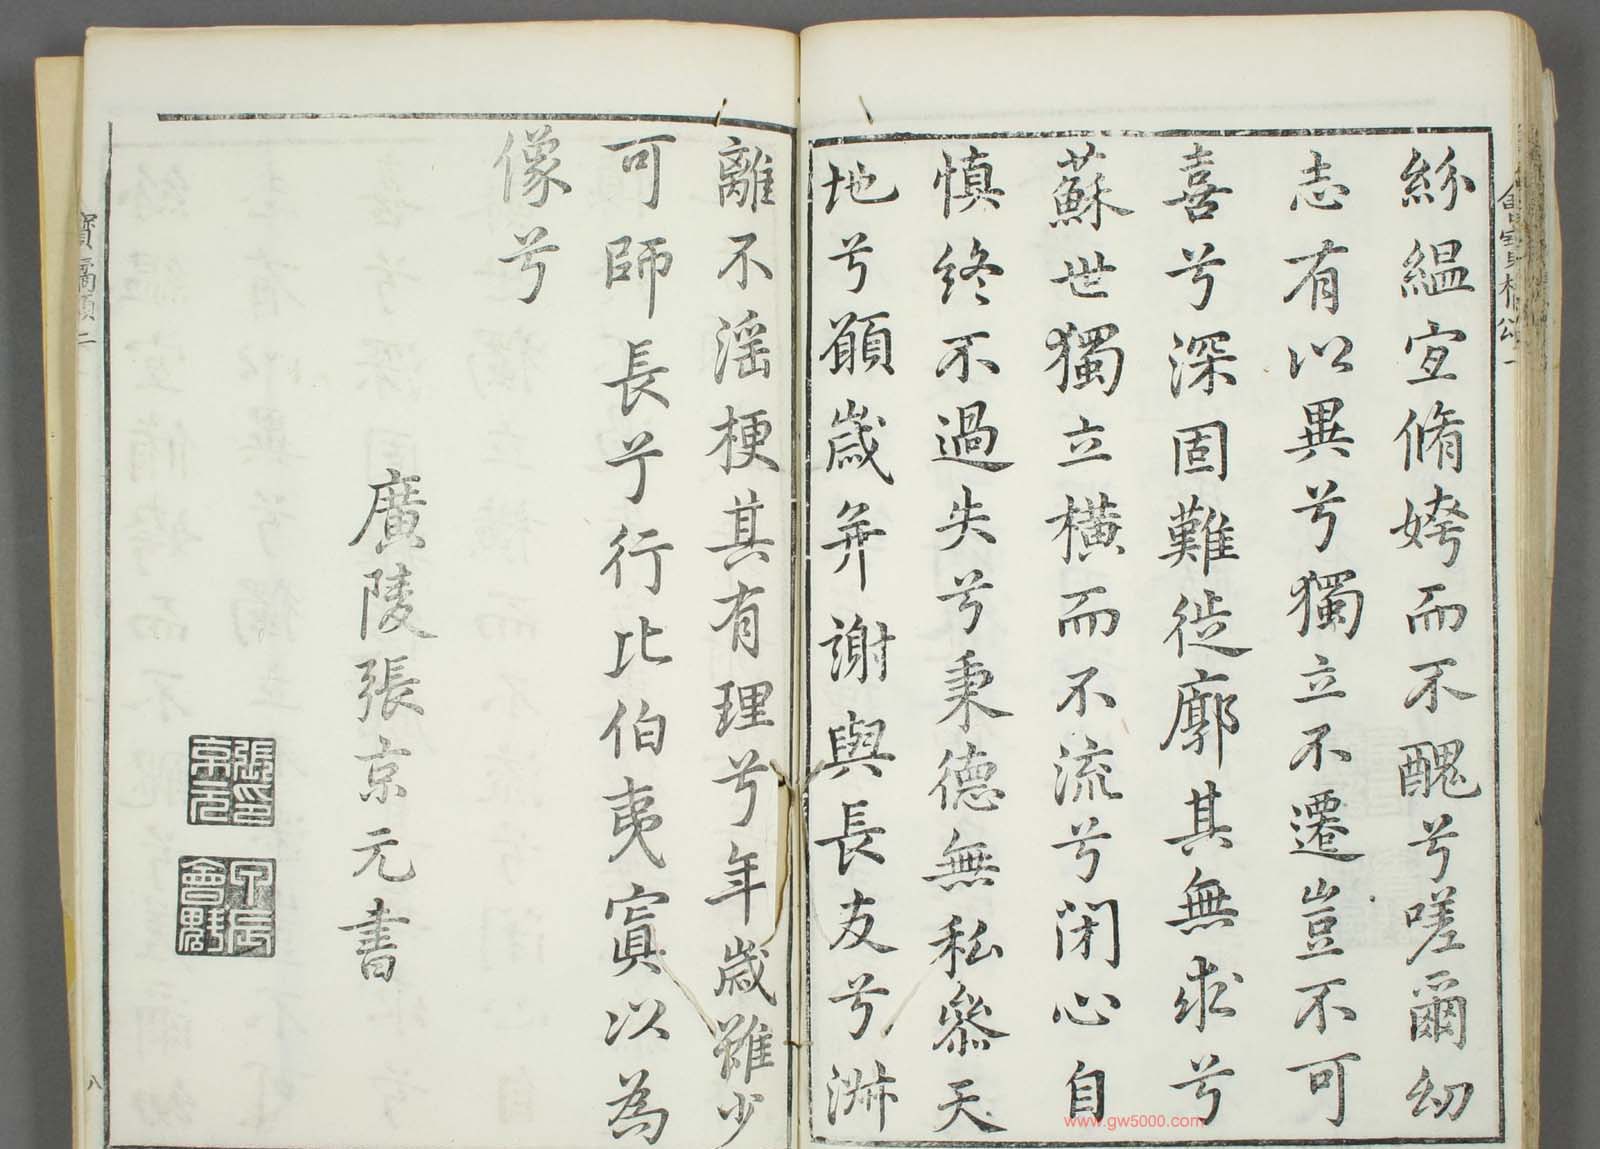 紛緼宜脩姱而不醜兮嗟爾幼
志有以異兮獨立不遷豈不可
喜兮深固難徙廓其無求兮
蘇世獨立橫而不流兮閉心自
慎終不過失兮秉德無私叅天
地兮願歲并謝與長友兮淑
離不滛梗其有理兮年歲雖少
可師長兮行比伯夷寘以為
像兮
廣陵張京元書
張京元印
www.gw5000.com